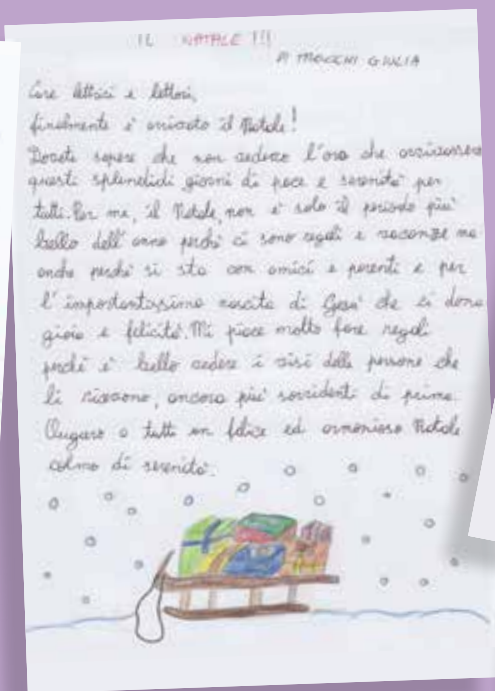 IL NATALE !!!
DI MOCCHI GIULIA
Care lettrici e lettori,
finalmente è arrivato il Natale!
Dovete sapere che non vedevo l'ora che arrivassero
questi splendidi giorni di pace e serenità per
tutti. Per me, il Natale, non è solo il periodo più
bello dell'anno perché ci sono regali e vacanze ma
anche perché si sta con amici e parenti e per
l'importantissima nascita di Gesù che ci dona
gioia e felicità. Mi piace molto fare regali
perché è bello vedere i visi delle persone che
li ricevono, ancora più sorridenti di prima.
Auguro a tutti un felice ed armonioso Natale
colmo di serenità.